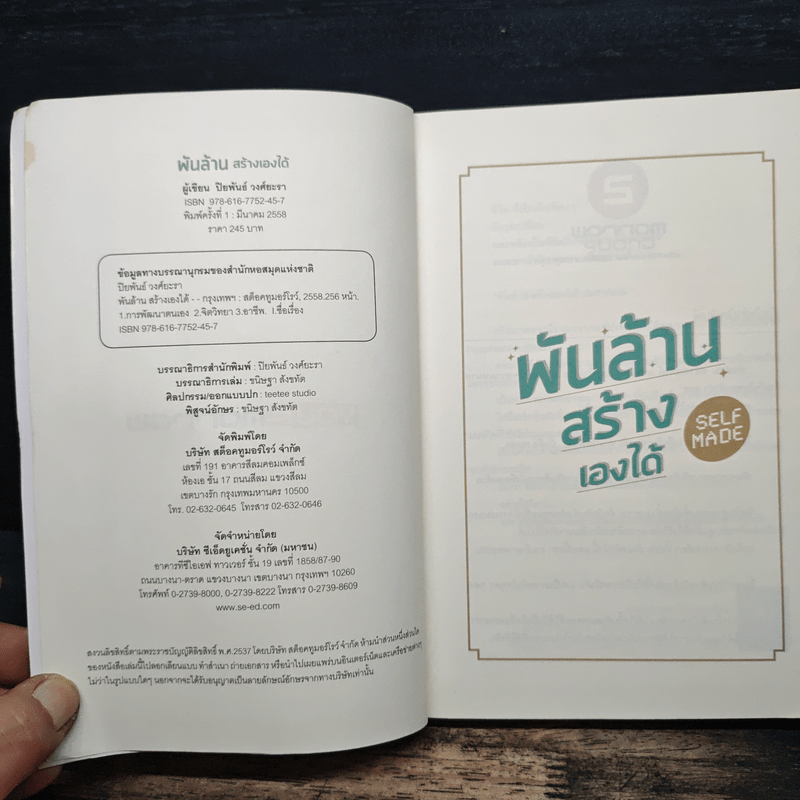 พันล้าน สร้างเองได้
ผู้เขียน ปิยพันธ์ วงศ์ยะรา
ISBN 978-616-7752-45-7
พิมพ์ครั้งที่ 1 : มีนาคม 2558
ราคา 245 บาท
ข้อมูลทางบรรณานุกรมของสำนักหอสมุดแห่งชาติ
ปิยพันธ์ วงศ์ยะรา
พันล้าน สร้างเองได้ - - กรุงเทพฯ : สต็อคทูมอร์โรว์, 2558.256 หน้า.
1.การพัฒนาตนเอง 2.จิตวิทยา 3.อาชีพ. I.ชื่อเรื่อง
ISBN 978-616-7752-45-7
บรรณาธิการสำนักพิมพ์ : ปิยพันธ์ วงศ์ยะรา
บรรณาธิการเล่ม : ขนิษฐา สังขทัต
ศิลปกรรม/ออกแบบปก : teetee studio
พิสูจน์อักษร : ขนิษฐา สังขทัต
จัดพิมพ์โดย
บริษัท สต็อคทูมอร์โรว์ จำกัด
เลขที่ 191 อาคารสีลมคอมเพล็กซ์
ห้องเอ ชั้น 17 ถนนสีลม แขวงสีลม
เขตบางรัก กรุงเทพมหานคร 10500
โทร. 02-632-0645 โทรสาร 02-632-0646
จัดจำหน่ายโดย
บริษัท ซีเอ็ดยูเคชั่น จำกัด (มหาชน)
อาคารทีซีไอเอฟ ทาวเวอร์ ชั้น 19 เลขที่ 1858/87-90
ถนนบางนา-ตราด แขวงบางนา เขตบางนา กรุงเทพฯ 10260
โทรศัพท์ 0-2739-8000, 0-2739-8222 โทรสาร 0-2739-8609
www.se-ed.com
สงวนลิขสิทธิ์ตามพระราชบัญญัติลิขสิทธิ์ พ.ศ.2537 โดยบริษัท สต็อคทูมอร์โรว์ จำกัด ห้ามนำส่วนหนึ่งส่วนใด
ของหนังสือเล่มนี้ไปลอกเลียนแบบ ทำสำเนา ถ่ายเอกสาร หรือนำไปเผยแพร่บนอินเตอร์เน็ตและเครือข่ายต่างๆ
ไม่ว่าในรูปแบบใดๆ นอกจากจะได้รับอนุญาตเป็นลายลักษณ์อักษรจากทางบริษัทเท่านั้น
พันล้าน
สร้าง
เองได้
SELF
MADE